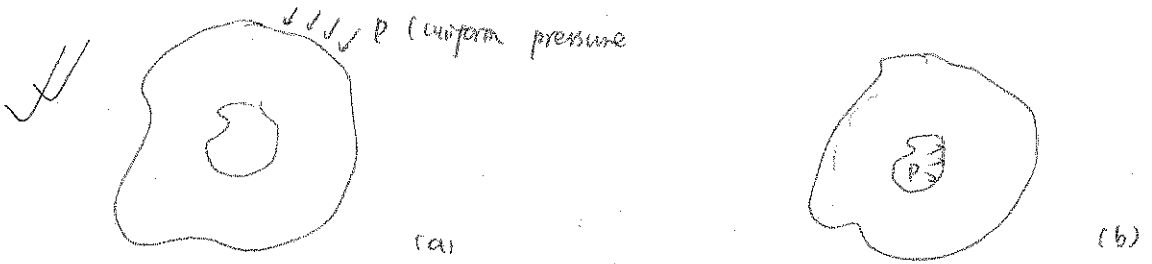 P (uniform pressure
P
(a)
(b)